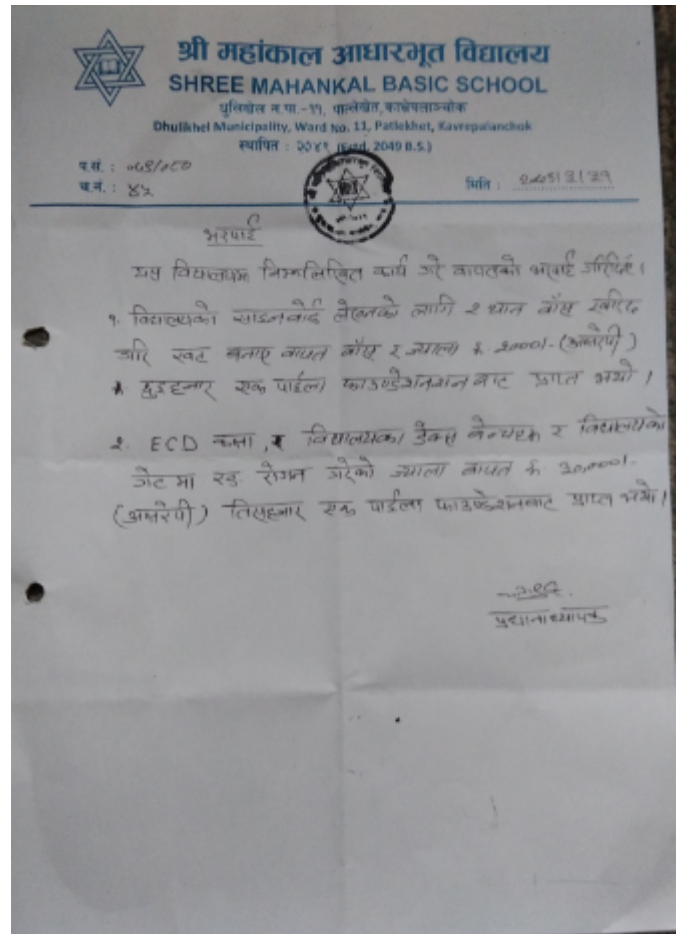 श्री महांकाल आधारभूत विद्यालय
SHREE MAHANKAL BASIC SCHOOL
धुलिखेल न.पा.-११, पात्लेखेत, काभ्रेपलाञ्चोक
Dhulikhel Municipality, Ward No. 11, Patlekhet, Kavrepalanchok
स्थापित : २०४९ (Estd. 2049 B.S.)
प.सं. : ०७९/०८०
च.नं. : ४५
मिति :
भरपाई
यस विद्यालयमा निम्नलिखित कार्य गरे वापतको भरपाई गरिदिएँ।
१. विद्यालयको साइनबोर्ड लेख्नको लागि २ थान बाँस खरिद
गरि बनाए वापत बाँस र ज्याला रु. २०००।- (अक्षरेपी)
दुइहजार एक पाईला फाउण्डेशनबाट प्राप्त भयो।
२. ECD कक्षा, र विद्यालयका डेक्स बेन्चहरू र विद्यालयको
गेट मा रङ रोगन गरेको ज्याला वापत रु. ३०,०००।-
(अक्षरेपी) तिसहजार एक पाईला फाउण्डेशनबाट प्राप्त भयो।
प्रधानाध्यापक